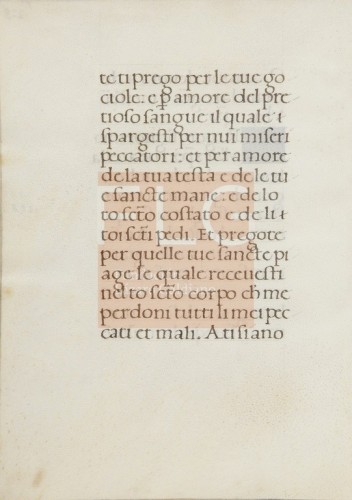 te ti prego per le tue go
ciole: e p̄ amore del pre
tioso sangue il quale i
spargesti per nui miseri
peccatori: et per amore
de la tua testa e de le tu
e sancte mane: e de lo
to scto costato e de li t
toi scti pedi. Et pregote
per quelle tue sancte pi
age le quale receuesti
nel to scto corpo ch̄ me
perdoni tutti li mei pec
cati et mali. A ti siano